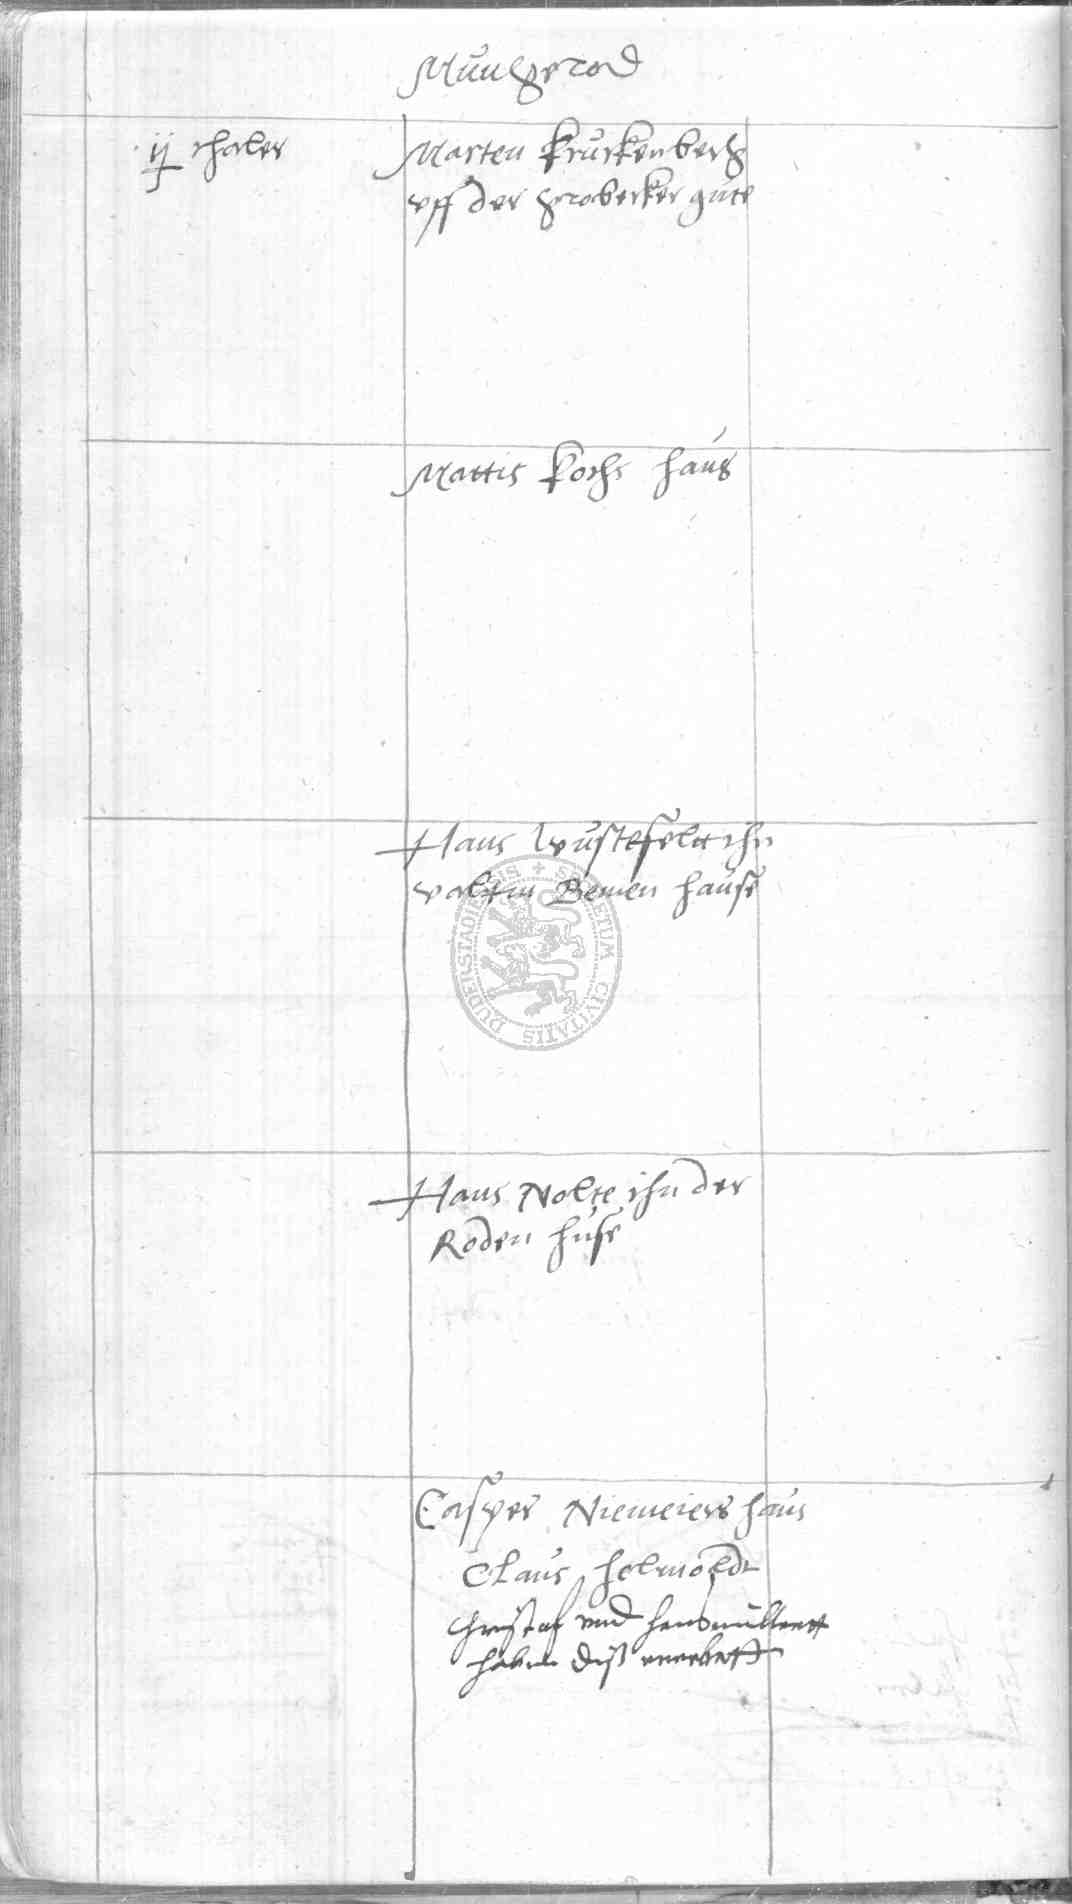 Mungerod
ij thaler
Marten Kruckenberg
vff der probecker gute
Mattis Kochs haus
Hans Wustefelt ihn
valtin Bemen hause
SECRETUM CIVITATIS DUDERSTADIENSIS
Hans Nolte ihn der
Roden huse
Casper Niemeiers haus
Claus helmoldt
vnd hans
haben diß